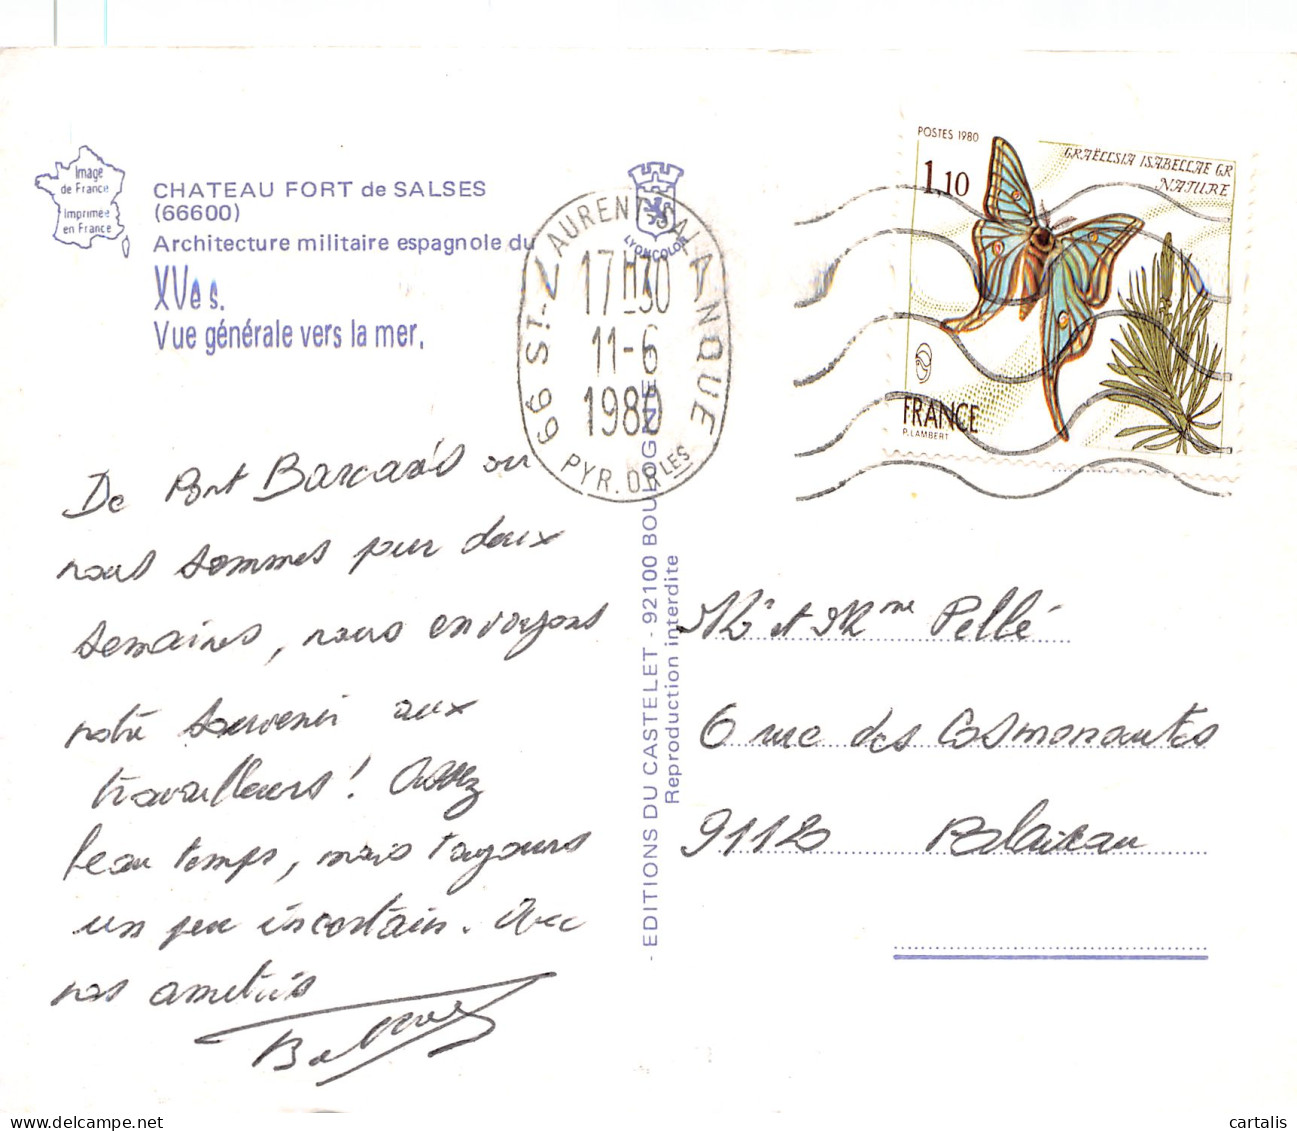 Image
de France
Imprimée
en France
CHATEAU FORT de SALSES
(66600)
Architecture militaire espagnole du
XVe s.
Vue générale vers la mer.
LYONCOLOR
66 ST-LAURENT-SALANQUE
17H30
11-6
1980
PYR. ORLES
POSTES 1980
1,10
GRAËLLSIA ISABELLAE GR
NATURE
FRANCE
P. LAMBERT
De Port Barcarès où
nous sommes pour deux
semaines, nous envoyons
notre souvenir aux
travailleurs! Assez
beau temps, mais toujours
un peu incertain. Avec
nos amitiés
- EDITIONS DU CASTELET - 92100 BOULOGNE
Reproduction interdite
Mr et Mme Pellé
6 rue des Cosmonautes
91120 Palaiseau
cartalis
delcampe.net